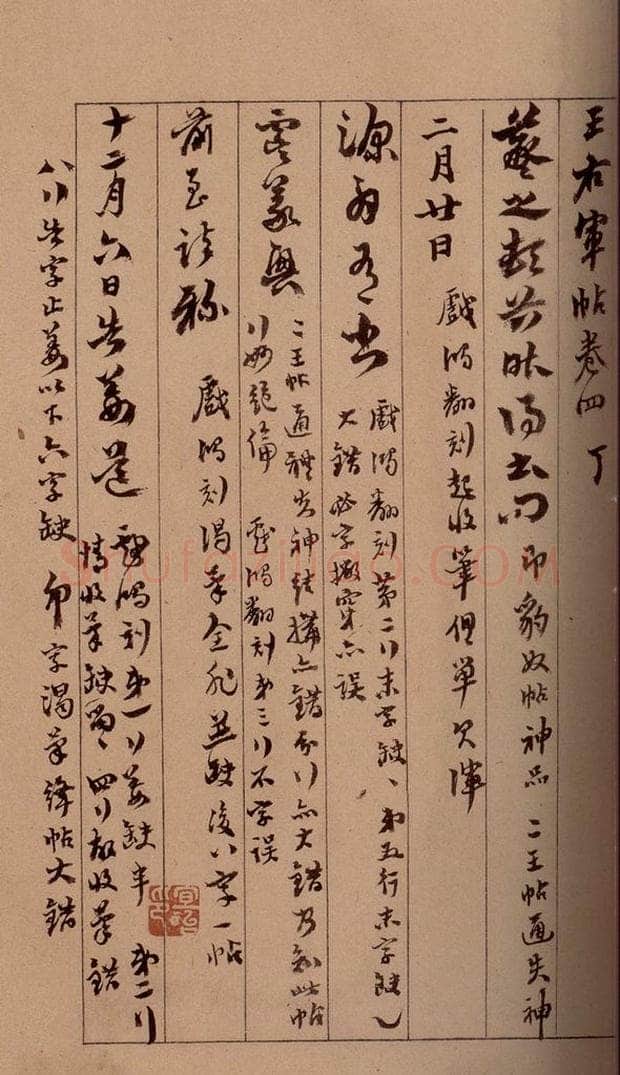 王右軍帖卷四 丁
羲之頓首昨得書問 即豹奴帖神品 二王帖通失神
二月廿日 戲鴻翻刻起收筆但單欠渾
源書 戲鴻翻刻 第二行末字缺、第五行末字缺
大錯 必字撇穿亦誤
虞義興 二王帖通體失神結構亦錯 分行亦大錯 乃知此帖
行妙絕倫 戲鴻翻刻第三行不字誤
前至 戲鴻刻渴筆全非並缺後八字一帖
十二月六日告姜道 戲鴻刻第一行姜缺半 第二行
情收筆缺 四行故收筆錯
八行告字止姜以下六字缺 卯字渴筆絳帖大錯
shufazidian.com